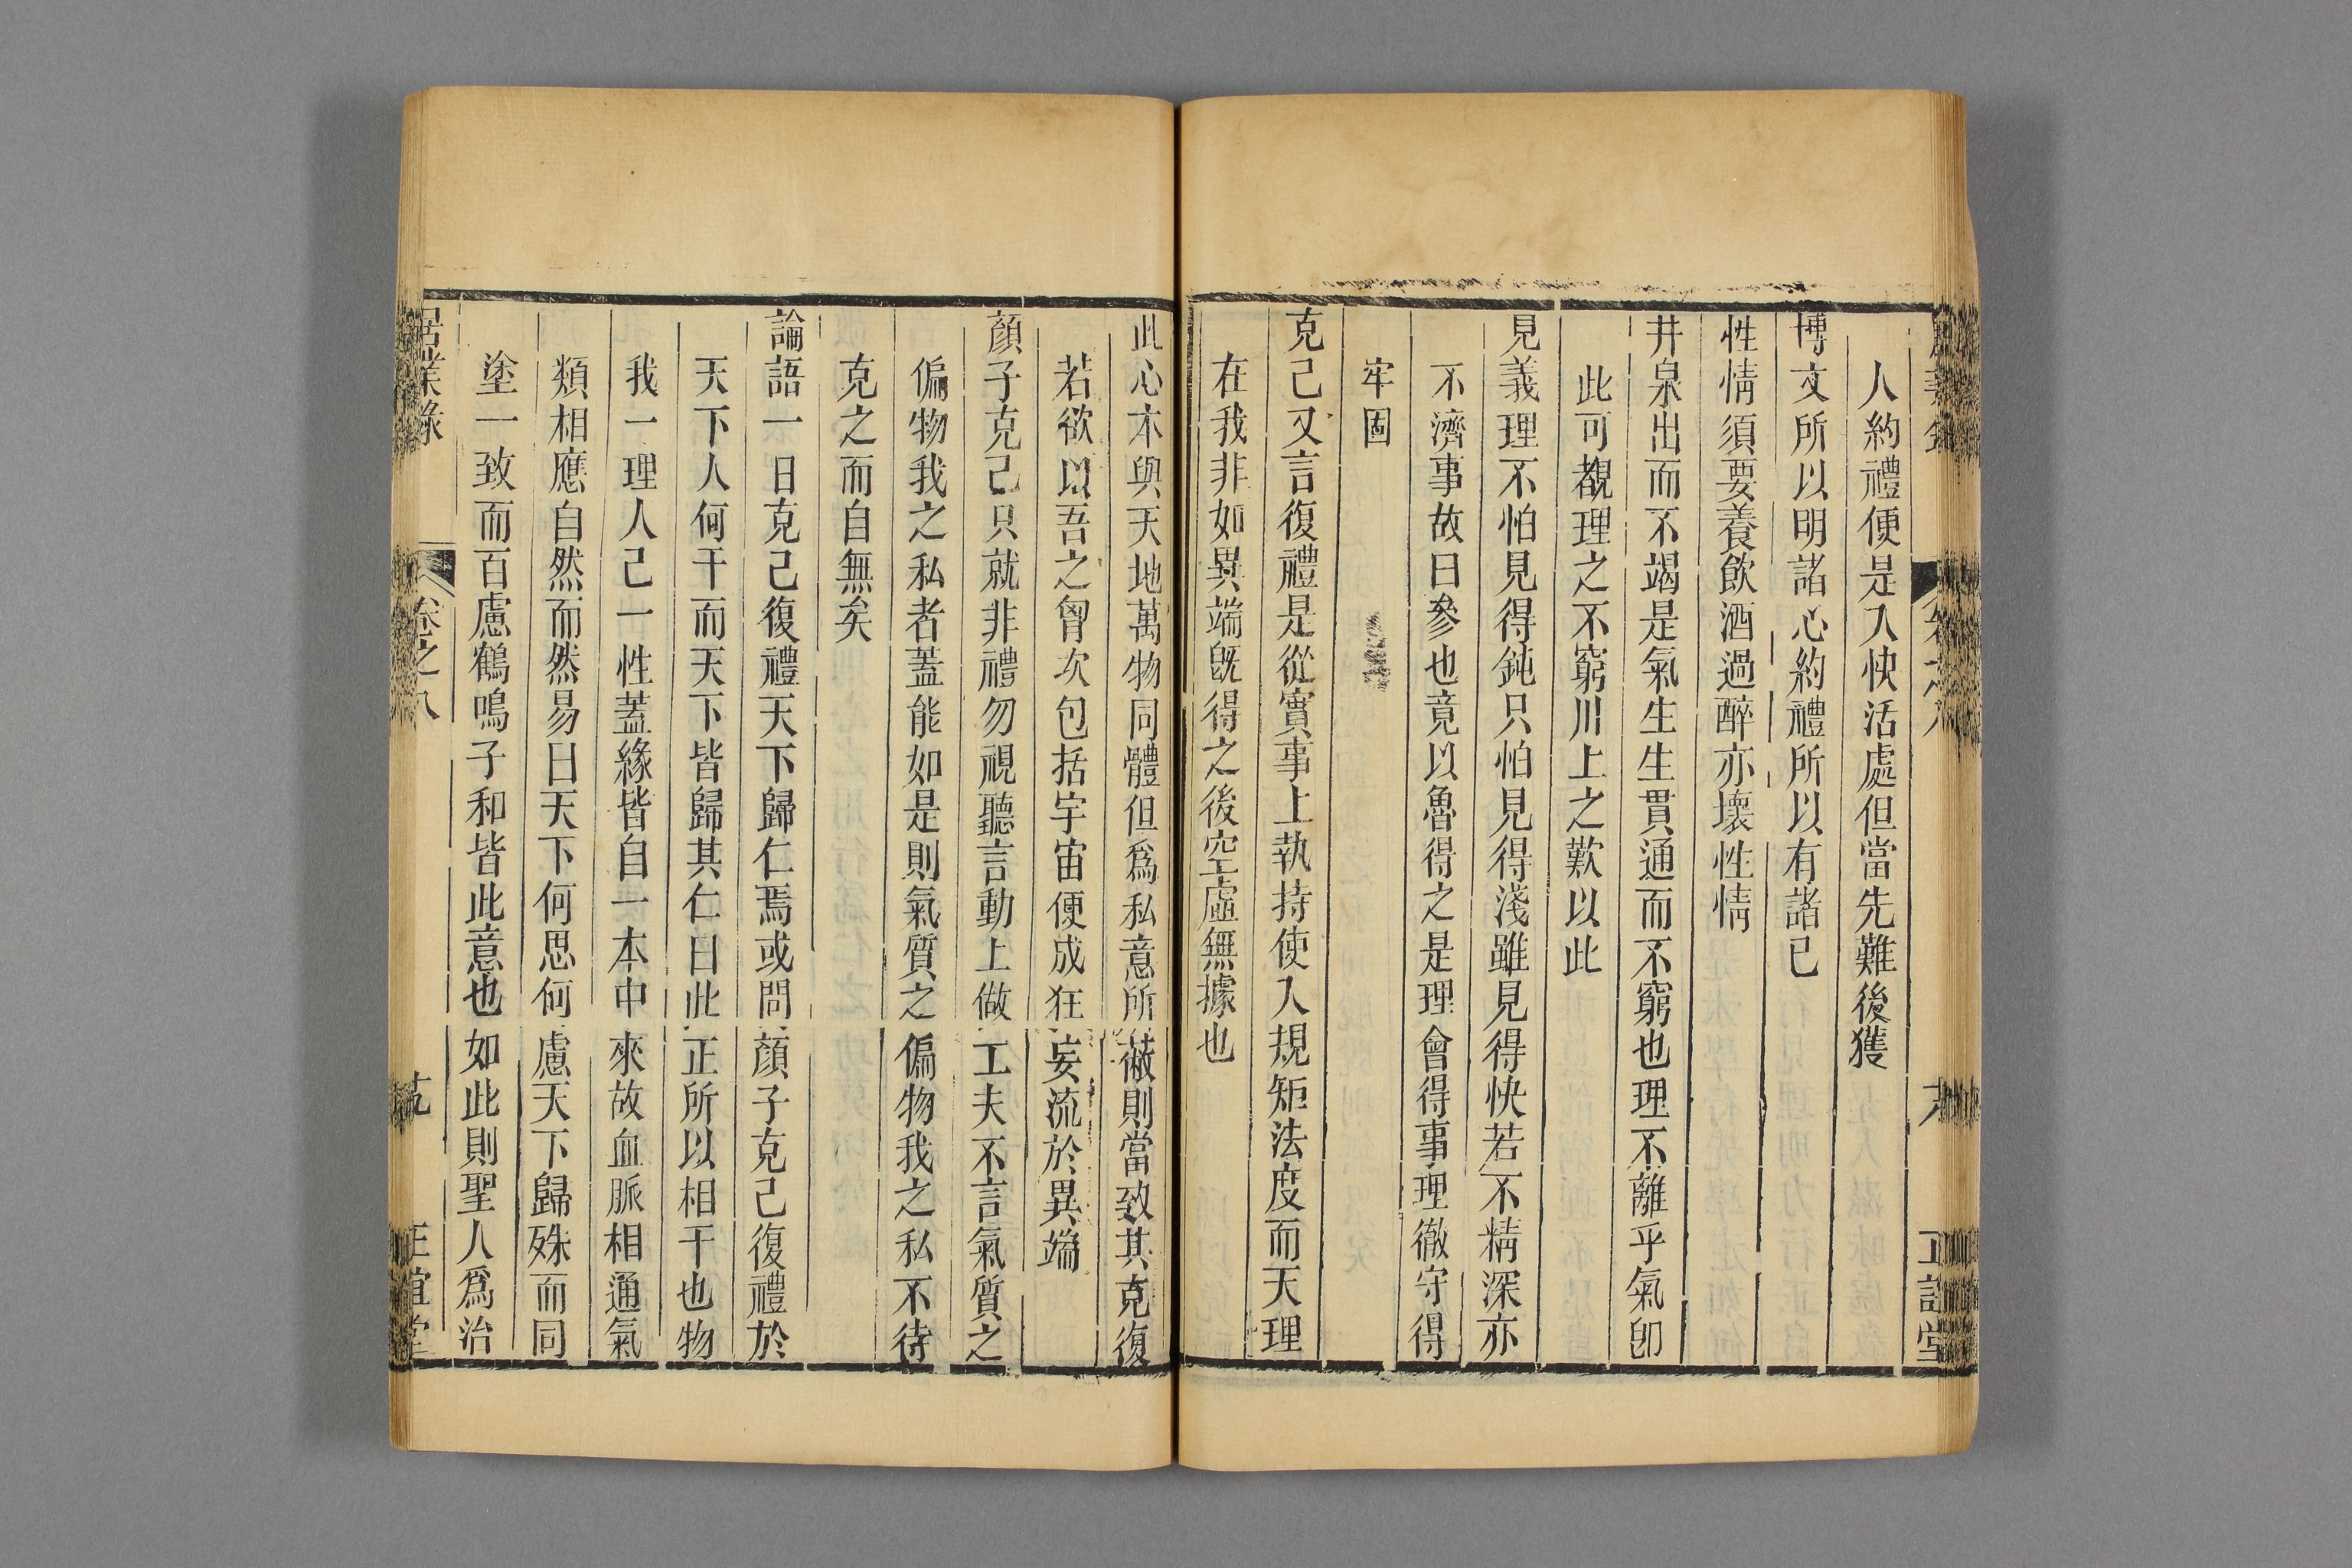 人約禮便是入快活處但當先難後獲
博文所以明諸心約禮所以有諸已
性情須要養飲酒過醉亦壞性情
井泉出而不竭是氣生生貫通而不窮也理不離乎氣卽
此可觀理之不窮川上之歎以此
見義理不怕見得鈍只怕見得淺雖見得快若不精深亦
不濟事故曰參也竟以魯得之是理會得事理徹守得
牢固
克己又言復禮是從實事上執持使入規矩法度而天理
在我非如異端旣得之後空虛無據也
此心本與天地萬物同體但爲私意所蔽則當致其克復
若欲以吾之胷次包括宇宙便成狂妄流於異端
顏子克己只就非禮勿視聽言動上做工夫不言氣質之
偏物我之私者蓋能如是則氣質之偏物我之私不待
克之而自無矣
論語一日克己復禮天下歸仁焉或問顏子克己復禮於
天下人何干而天下皆歸其仁曰此正所以相干也物
我一理人己一性蓋緣皆自一本中來故血脈相通氣
類相應自然而然易曰天下何思何慮天下歸殊而同
塗一致而百慮鶴鳴子和皆此意也如此則聖人爲治
居業錄 卷之八 正誼堂